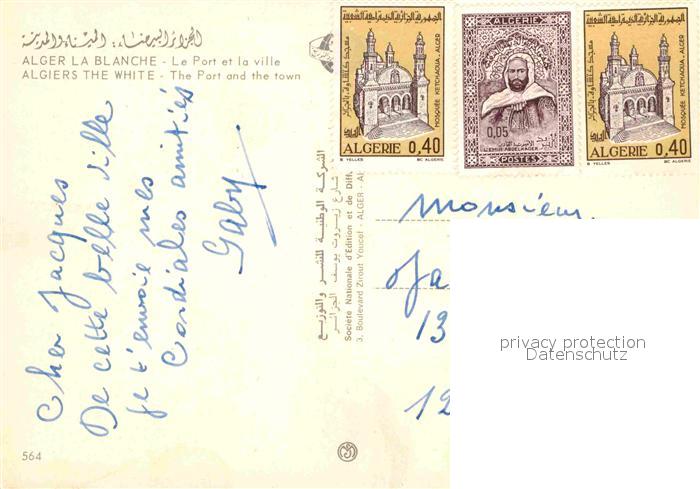 الجزائر البيضاء: الميناء والمدينة
ALGER LA BLANCHE - Le Port et la ville
ALGIERS THE WHITE - The Port and the town
Cher Jacques
De cette belle ville
je t'envoie mes
Cordiales amitiés
Gaby
564
الشركة الوطنية للنشر والتوزيع
شارع زيروت يوسف الجزائر
Société Nationale d'Edition et de Diff.
3, Boulevard Zirout Youcef - ALGER - Al
الجمهورية الجزائرية الديمقراطية الشعبية
مسجد كتشاوة بالجزائر
MOSQUÉE KETCHAOUA. ALGER
ALGERIE 0,40
B YELLES BC ALGERIE
ALGERIE
0,05
L'EMIR ABDELKADER
POSTES
الجمهورية الجزائرية الديمقراطية الشعبية
مسجد كتشاوة بالجزائر
MOSQUÉE KETCHAOUA. ALGER
ALGERIE 0,40
B YELLES BC ALGERIE
Monsieur
Ja
13
12
privacy protection
Datenschutz